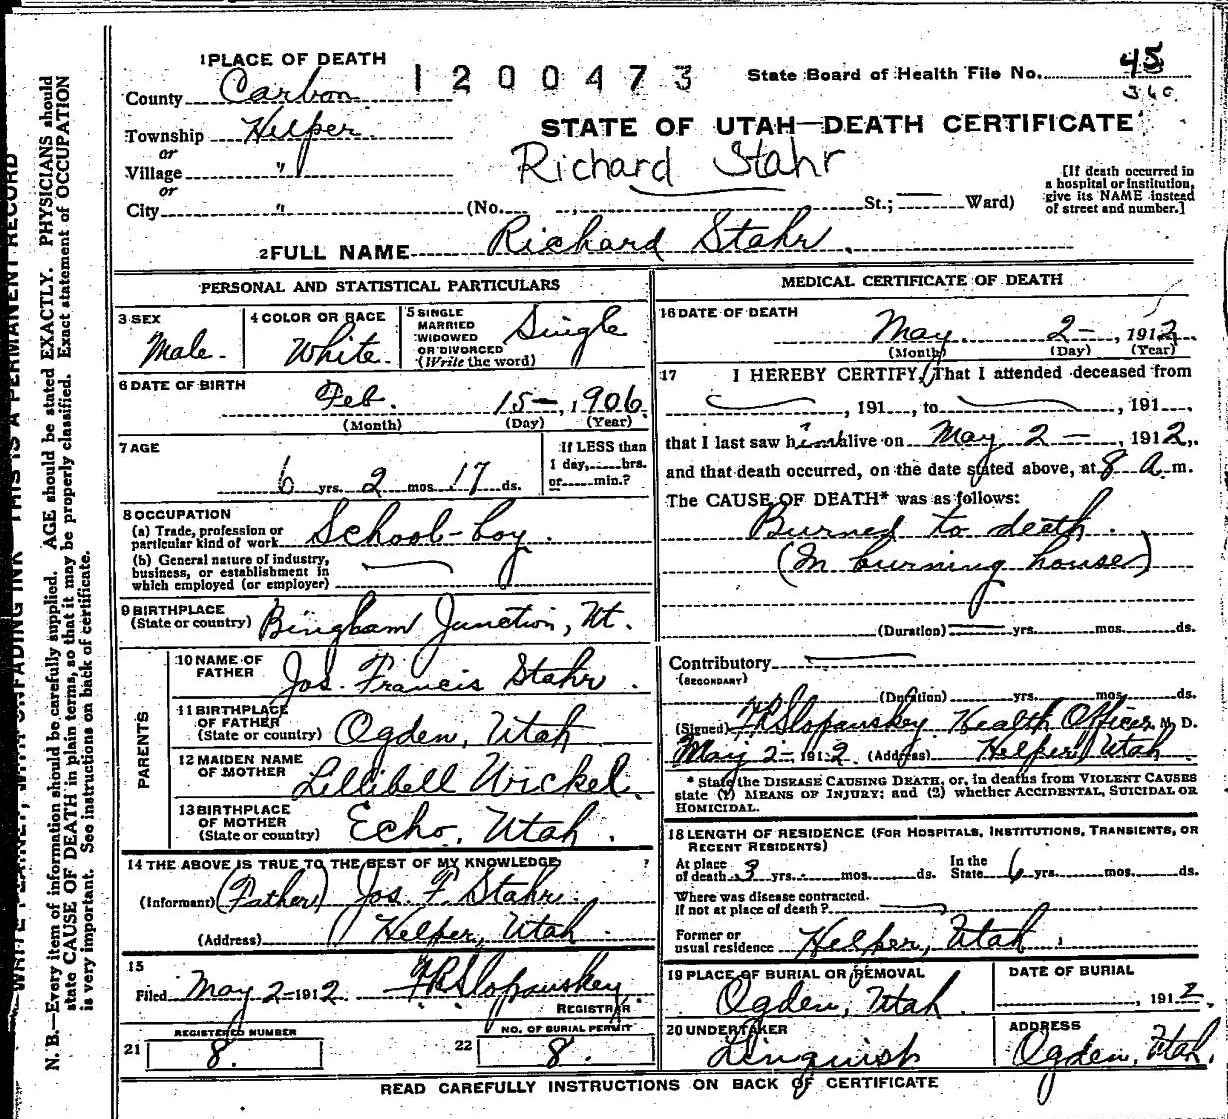 1 PLACE OF DEATH
1200473
State Board of Health File No. 45
360
County Carbon
Township Helper
or
Village "
or
City "
STATE OF UTAH—DEATH CERTIFICATE
Richard Stahr
[If death occurred in
a hospital or institution,
give its NAME instead
of street and number.]
(No. , St.; — Ward)
2 FULL NAME Richard Stahr.
PERSONAL AND STATISTICAL PARTICULARS
3 SEX
Male.
4 COLOR OR RACE
White.
5 SINGLE
MARRIED
WIDOWED
OR DIVORCED
(Write the word)
Single
6 DATE OF BIRTH
Feb. 15—, 1906.
(Month) (Day) (Year)
7 AGE
6 yrs. 2 mos. 17 ds.
If LESS than
1 day, hrs.
or min.?
8 OCCUPATION
(a) Trade, profession or
particular kind of work School-boy.
(b) General nature of industry,
business, or establishment in
which employed (or employer)
9 BIRTHPLACE
(State or country) Bingham Junction, Ut.
PARENTS
10 NAME OF
FATHER Jos. Francis Stahr.
11 BIRTHPLACE
OF FATHER
(State or country) Ogden, Utah
12 MAIDEN NAME
OF MOTHER Lillibell Wickel.
13 BIRTHPLACE
OF MOTHER
(State or country) Echo, Utah.
14 THE ABOVE IS TRUE TO THE BEST OF MY KNOWLEDGE
(Informant) (Father) Jos. F. Stahr.
(Address) Helper, Utah.
15
Filed May 2—1912. FRSlopanskey
REGISTRAR
REGISTERED NUMBER
21 8.
NO. OF BURIAL PERMIT
22 8.
MEDICAL CERTIFICATE OF DEATH
16 DATE OF DEATH
May 2—, 1912
(Month) (Day) (Year)
17 I HEREBY CERTIFY, That I attended deceased from
, 191 , to , 191 .
that I last saw him alive on May 2—, 1912,
and that death occurred, on the date stated above, at 8 a m.
The CAUSE OF DEATH* was as follows:
Burned to death.
(In burning house)
(Duration) — yrs. mos. ds.
Contributory
(SECONDARY)
(Duration) yrs. mos. ds.
(Signed) FRSlopanskey Health Officer M. D.
May 2—1912 (Address) Helper, Utah
* State the DISEASE CAUSING DEATH, or, in deaths from VIOLENT CAUSES
state (1) MEANS OF INJURY; and (2) whether ACCIDENTAL, SUICIDAL OR
HOMICIDAL.
18 LENGTH OF RESIDENCE (FOR HOSPITALS, INSTITUTIONS, TRANSIENTS, OR
RECENT RESIDENTS)
At place
of death 3 yrs. mos. ds.
In the
State 6 yrs. mos. ds.
Where was disease contracted.
If not at place of death?
Former or
usual residence Helper, Utah.
19 PLACE OF BURIAL OR REMOVAL
Ogden, Utah.
DATE OF BURIAL
, 1912
20 UNDERTAKER
Linquist
ADDRESS
Ogden, Utah.
READ CAREFULLY INSTRUCTIONS ON BACK OF CERTIFICATE
WRITE PLAINLY, WITH UNFADING INK—THIS IS A PERMANENT RECORD
N. B.—Every item of information should be carefully supplied. AGE should be stated EXACTLY. PHYSICIANS should
state CAUSE OF DEATH in plain terms, so that it may be properly classified. Exact statement of OCCUPATION
is very important. See instructions on back of certificate.